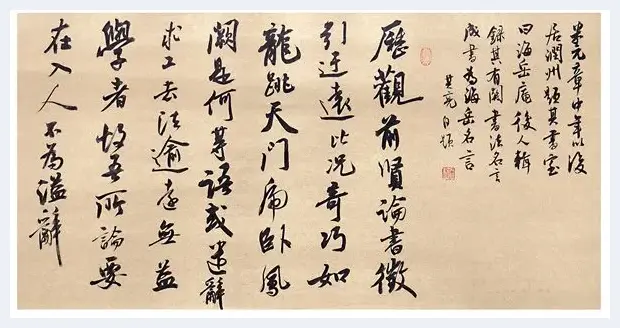 米元章中年以後
居潤州題其書室
曰海岳庵後人輯
錄其有關書法名言
成書為海岳名言
歷觀前賢論書徵
引迂遠比況奇巧如
龍跳天門虎臥鳳
闕是何等語或遣辭
求工去法逾遠無益
學者故吾所論要
在入人不為溢辭